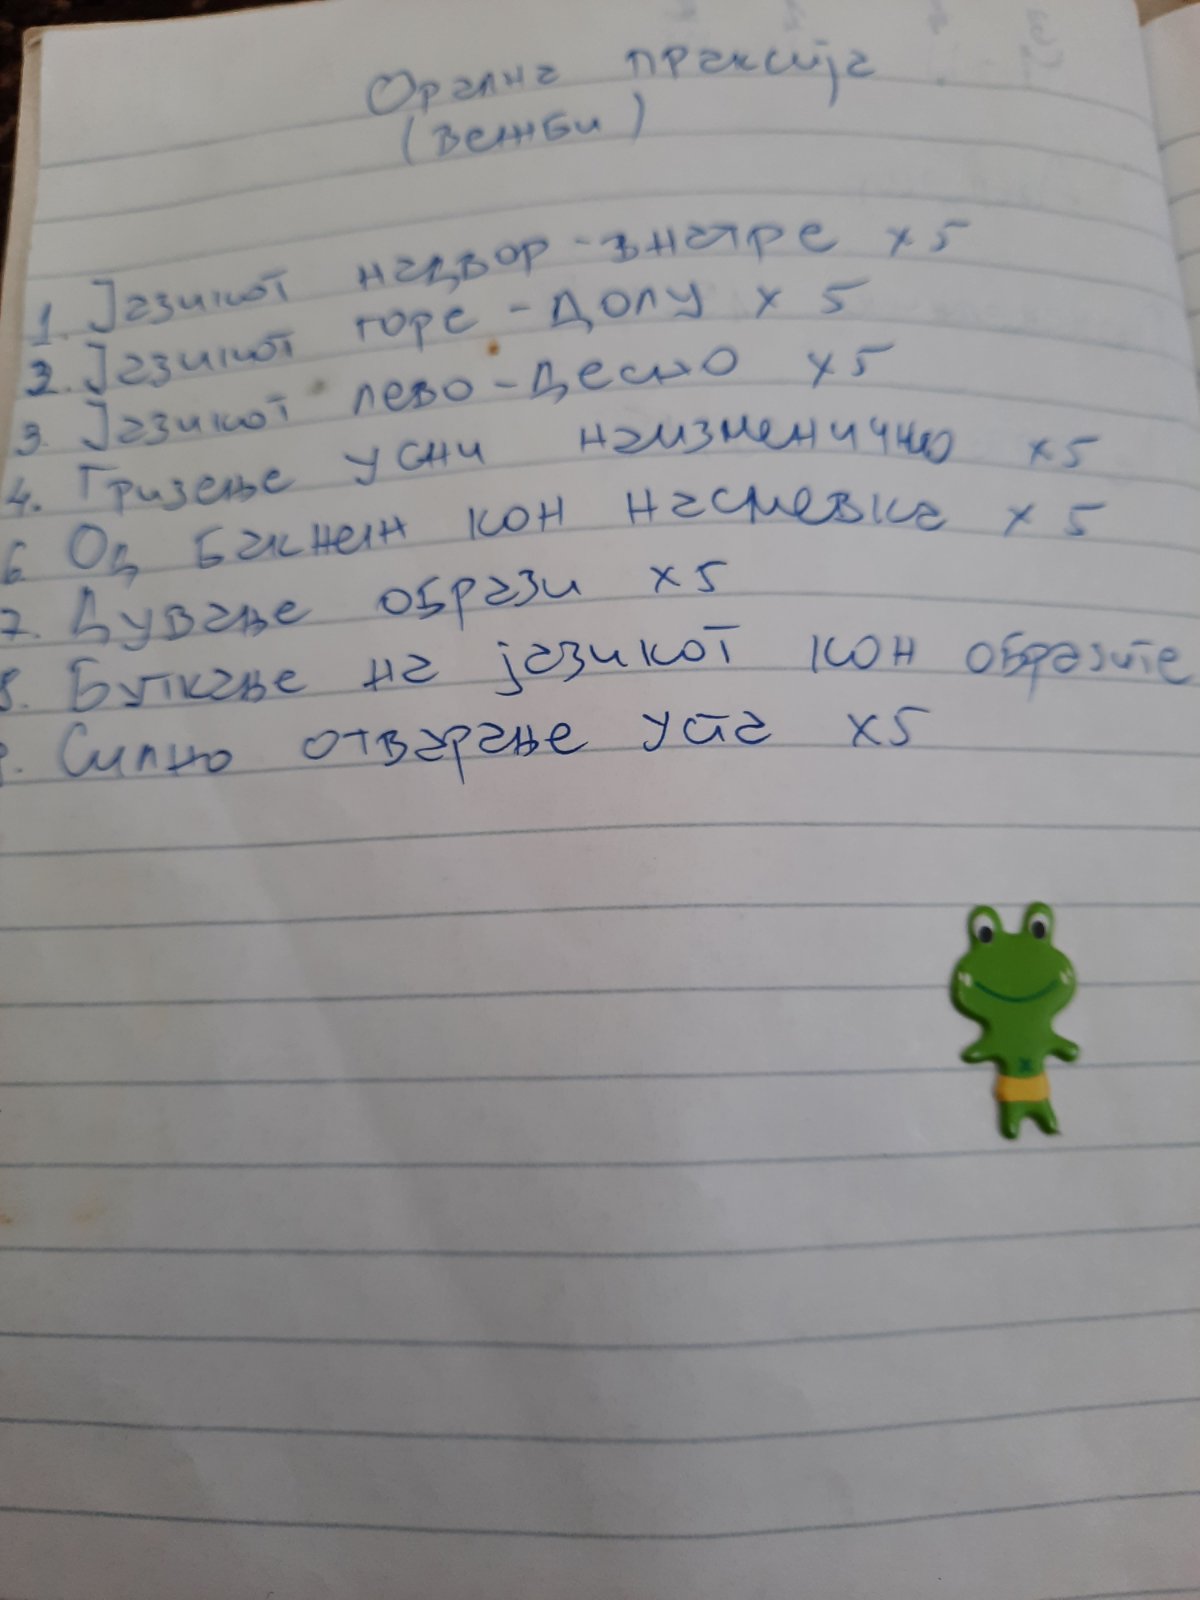 Орална праксија
(вежби)
1. Јазикот надвор-внатре x 5
2. Јазикот горе - долу x 5
3. Јазикот лево - десно x 5
4. Гризење усни наизменично x5
6. Од бакнеж кон насмевка x 5
7. Дување образи x5
8. Буткање на јазикот кон образите
9. Силно отварање уста x5